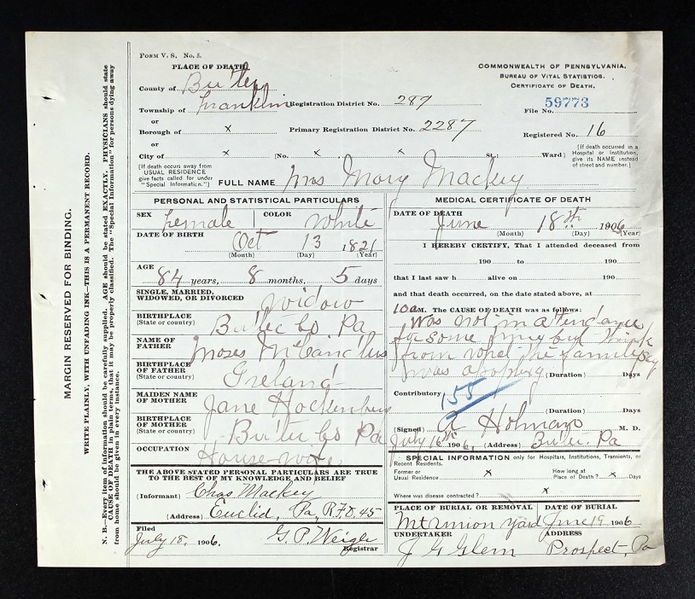 MARGIN RESERVED FOR BINDING.
WRITE PLAINLY, WITH UNFADING INK—THIS IS A PERMANENT RECORD.
N. B.—Every item of information should be carefully supplied. AGE should be stated EXACTLY. PHYSICIANS should state
CAUSE OF DEATH in plain terms, that it may be properly classified. The "Special Information" for persons dying away
from home should be given in every instance.
FORM V. S. No. 5.
PLACE OF DEATH
County of Butler
Township of Franklin Registration District No. 287
or
Borough of x Primary Registration District No. 2287
or
City of x (No. x x St. Ward)
COMMONWEALTH OF PENNSYLVANIA.
BUREAU OF VITAL STATISTICS.
CERTIFICATE OF DEATH.
File No. 59773
Registered No. 16
(If death occurs away from
USUAL RESIDENCE
give facts called for under
"Special Information.")
(If death occurred in a
Hospital or Institution,
give its NAME instead
of street and number.)
FULL NAME Mrs Mary Mackey
PERSONAL AND STATISTICAL PARTICULARS
SEX Female COLOR White
DATE OF BIRTH Oct 13 1821
(Month) (Day) (Year)
AGE
84 years, 8 months, 5 days
SINGLE, MARRIED,
WIDOWED, OR DIVORCED widow
BIRTHPLACE
(State or country) Butler Co Pa
NAME OF
FATHER Moses
BIRTHPLACE
OF FATHER
(State or country) Ireland
MAIDEN NAME
OF MOTHER Jane
BIRTHPLACE
OF MOTHER
(State or country) Butler Co Pa
OCCUPATION
THE ABOVE STATED PERSONAL PARTICULARS ARE TRUE
TO THE BEST OF MY KNOWLEDGE AND BELIEF
(Informant) Chas Mackey
(Address) Euclid, Pa, 45
Filed
July 18, 1906. G. P. Weigle
Registrar
MEDICAL CERTIFICATE OF DEATH
DATE OF DEATH
June 18th 1906
(Month) (Day) (Year)
I HEREBY CERTIFY, That I attended deceased from
190 to 190
that I last saw h alive on 190
and that death occurred, on the date stated above, at
10a M. The CAUSE OF DEATH was as follows:
Was not in attendance
for some time but think
from what the family say
was apoplexy (Duration) Days
Contributory 155
(Duration) Days
(Signed) M. D.
July 16th 1906, (Address) Butler Pa
SPECIAL INFORMATION only for Hospitals, Institutions, Transients, or
Recent Residents.
Former or
Usual Residence x How long at
Place of Death? x Days
Where was disease contracted? x
PLACE OF BURIAL OR REMOVAL DATE OF BURIAL
Mt Union Yard June 19 1906
UNDERTAKER ADDRESS
J G Glenn Prospect, Pa